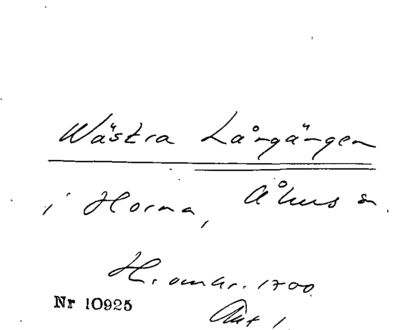 Wästra Långängen
i Horna, Åhus sn.
H. omkr. 1700.
Nr 10925
Ant 1